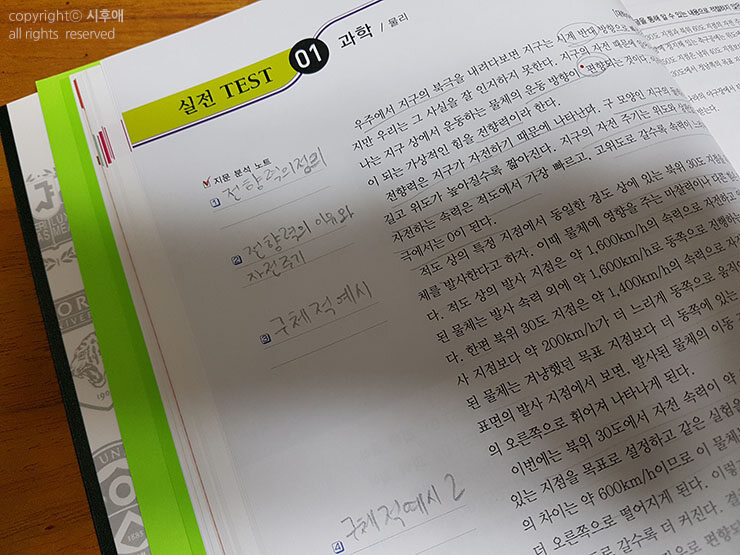 copyrightⓒ 시후애
all rights reserved
실전 TEST 01 과학 / 물리
지문 분석 노트
1 전향력의 정리
2 전향력의 이유와
자전주기
3 구체적 예시
4 구체적 예시 2
우주에서 지구의 북극을 내려다보면 지구는 시계 반대 방향으로
지만 우리는 그 사실을 잘 인지하지 못한다. 지구의 자전 때문에 일어
나는 지구 상에서 운동하는 물체의 운동 방향이 편향되는 것이다.
이 되는 가상적인 힘을 전향력이라 한다.
전향력은 지구가 자전하기 때문에 나타난다. 구 모양인 지구의
길고 위도가 높아질수록 짧아진다. 지구의 자전 주기는 위도와
자전하는 속력은 적도에서 가장 빠르고, 고위도로 갈수록 속력이
극에서는 0이 된다.
적도 상의 특정 지점에서 동일한 경도 상에 있는 북위 30도 지점을
체를 발사한다고 하자. 이때 물체에 영향을 주는 마찰력이나 다른 힘은
다. 적도 상의 발사 지점은 약 1,600km/h의 속력으로 자전하고
된 물체는 발사 속력 외에 약 1,600km/h로 동쪽으로 진행하는
다. 한편 북위 30도 지점은 약 1,400km/h의 속력으로 자
사 지점보다 약 200km/h가 더 느리게 동쪽으로 움직
된 물체는 겨냥했던 목표 지점보다 더 동쪽에 있는
표면의 발사 지점에서 보면, 발사된 물체의 이동
의 오른쪽으로 휘어져 나타나게 된다.
이번에는 북위 30도에서 자전 속력이 약
있는 지점을 목표로 설정하고 같은 실험을
의 차이는 약 600km/h이므로 이 물체는
더 오른쪽으로 떨어지게 된다. 이렇
로 갈수록 더 커진다. 결
으로 편향되